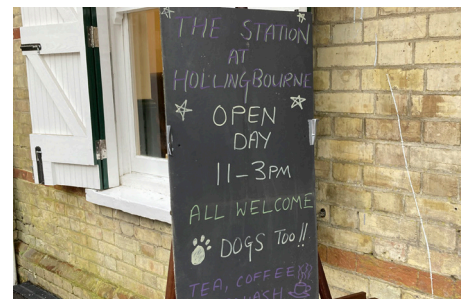 THE STATION
AT
HOLLINGBOURNE
OPEN
DAY
11-3PM
ALL WELCOME
DOGS TOO!!
TEA, COFFEE